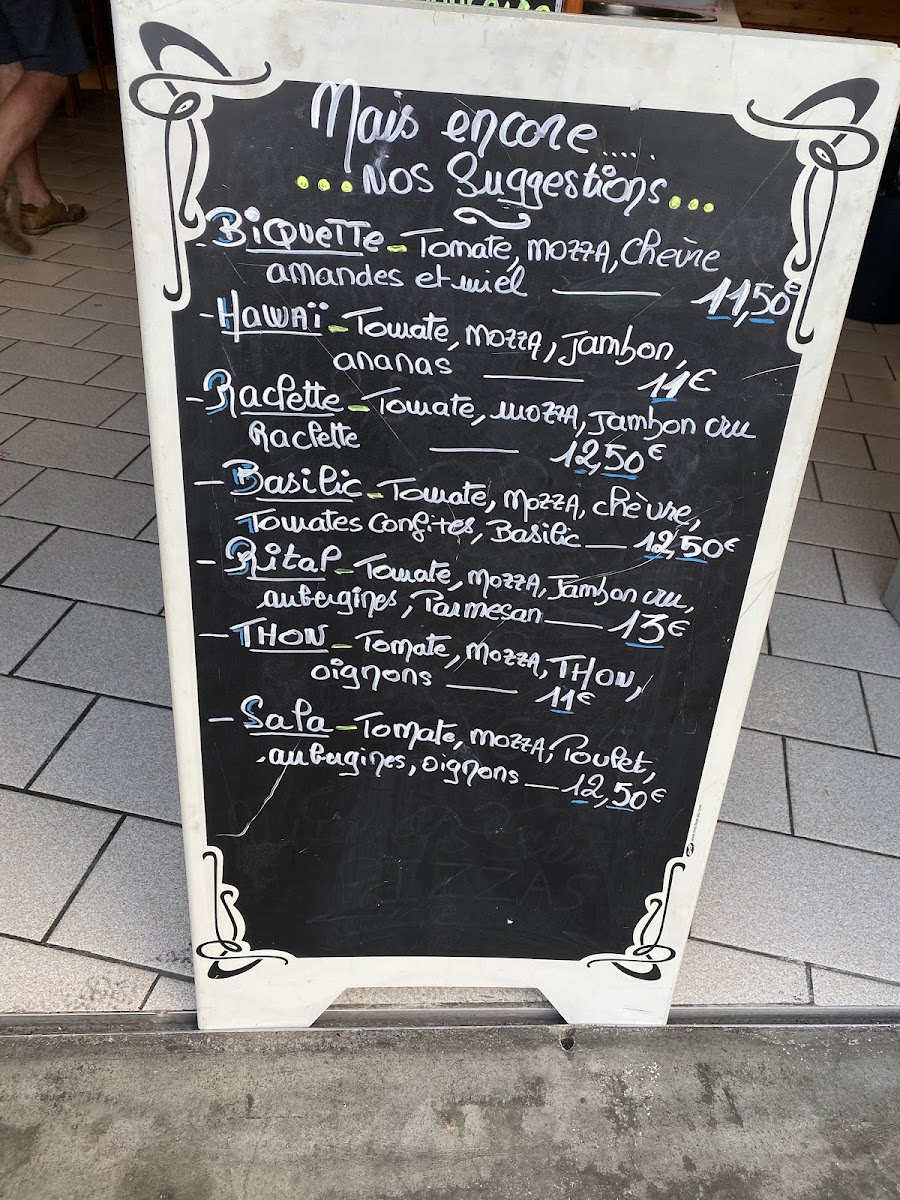 Mais encore.....
...Nos Suggestions...
- BiQUETTe - Tomate, MOZZA, Chèvre
amandes et miel — 11,50€
- HAWAÏ - Tomate, MOZZA, Jambon,
ananas — 11€
- Raclette - Tomate, MOZZA, Jambon cru
Raclette — 12,50€
- Basilic - Tomate, MOZZA, chèvre,
Tomates Confites, Basilic — 12,50€
- Rital - Tomate, MOZZA, Jambon cru,
aubergines, Parmesan — 13€
- THON - Tomate, MOZZA, THON,
oignons — 11€
- Sala - Tomate, MOZZA, Poulet,
aubergines, oignons — 12,50€
PIZZAS